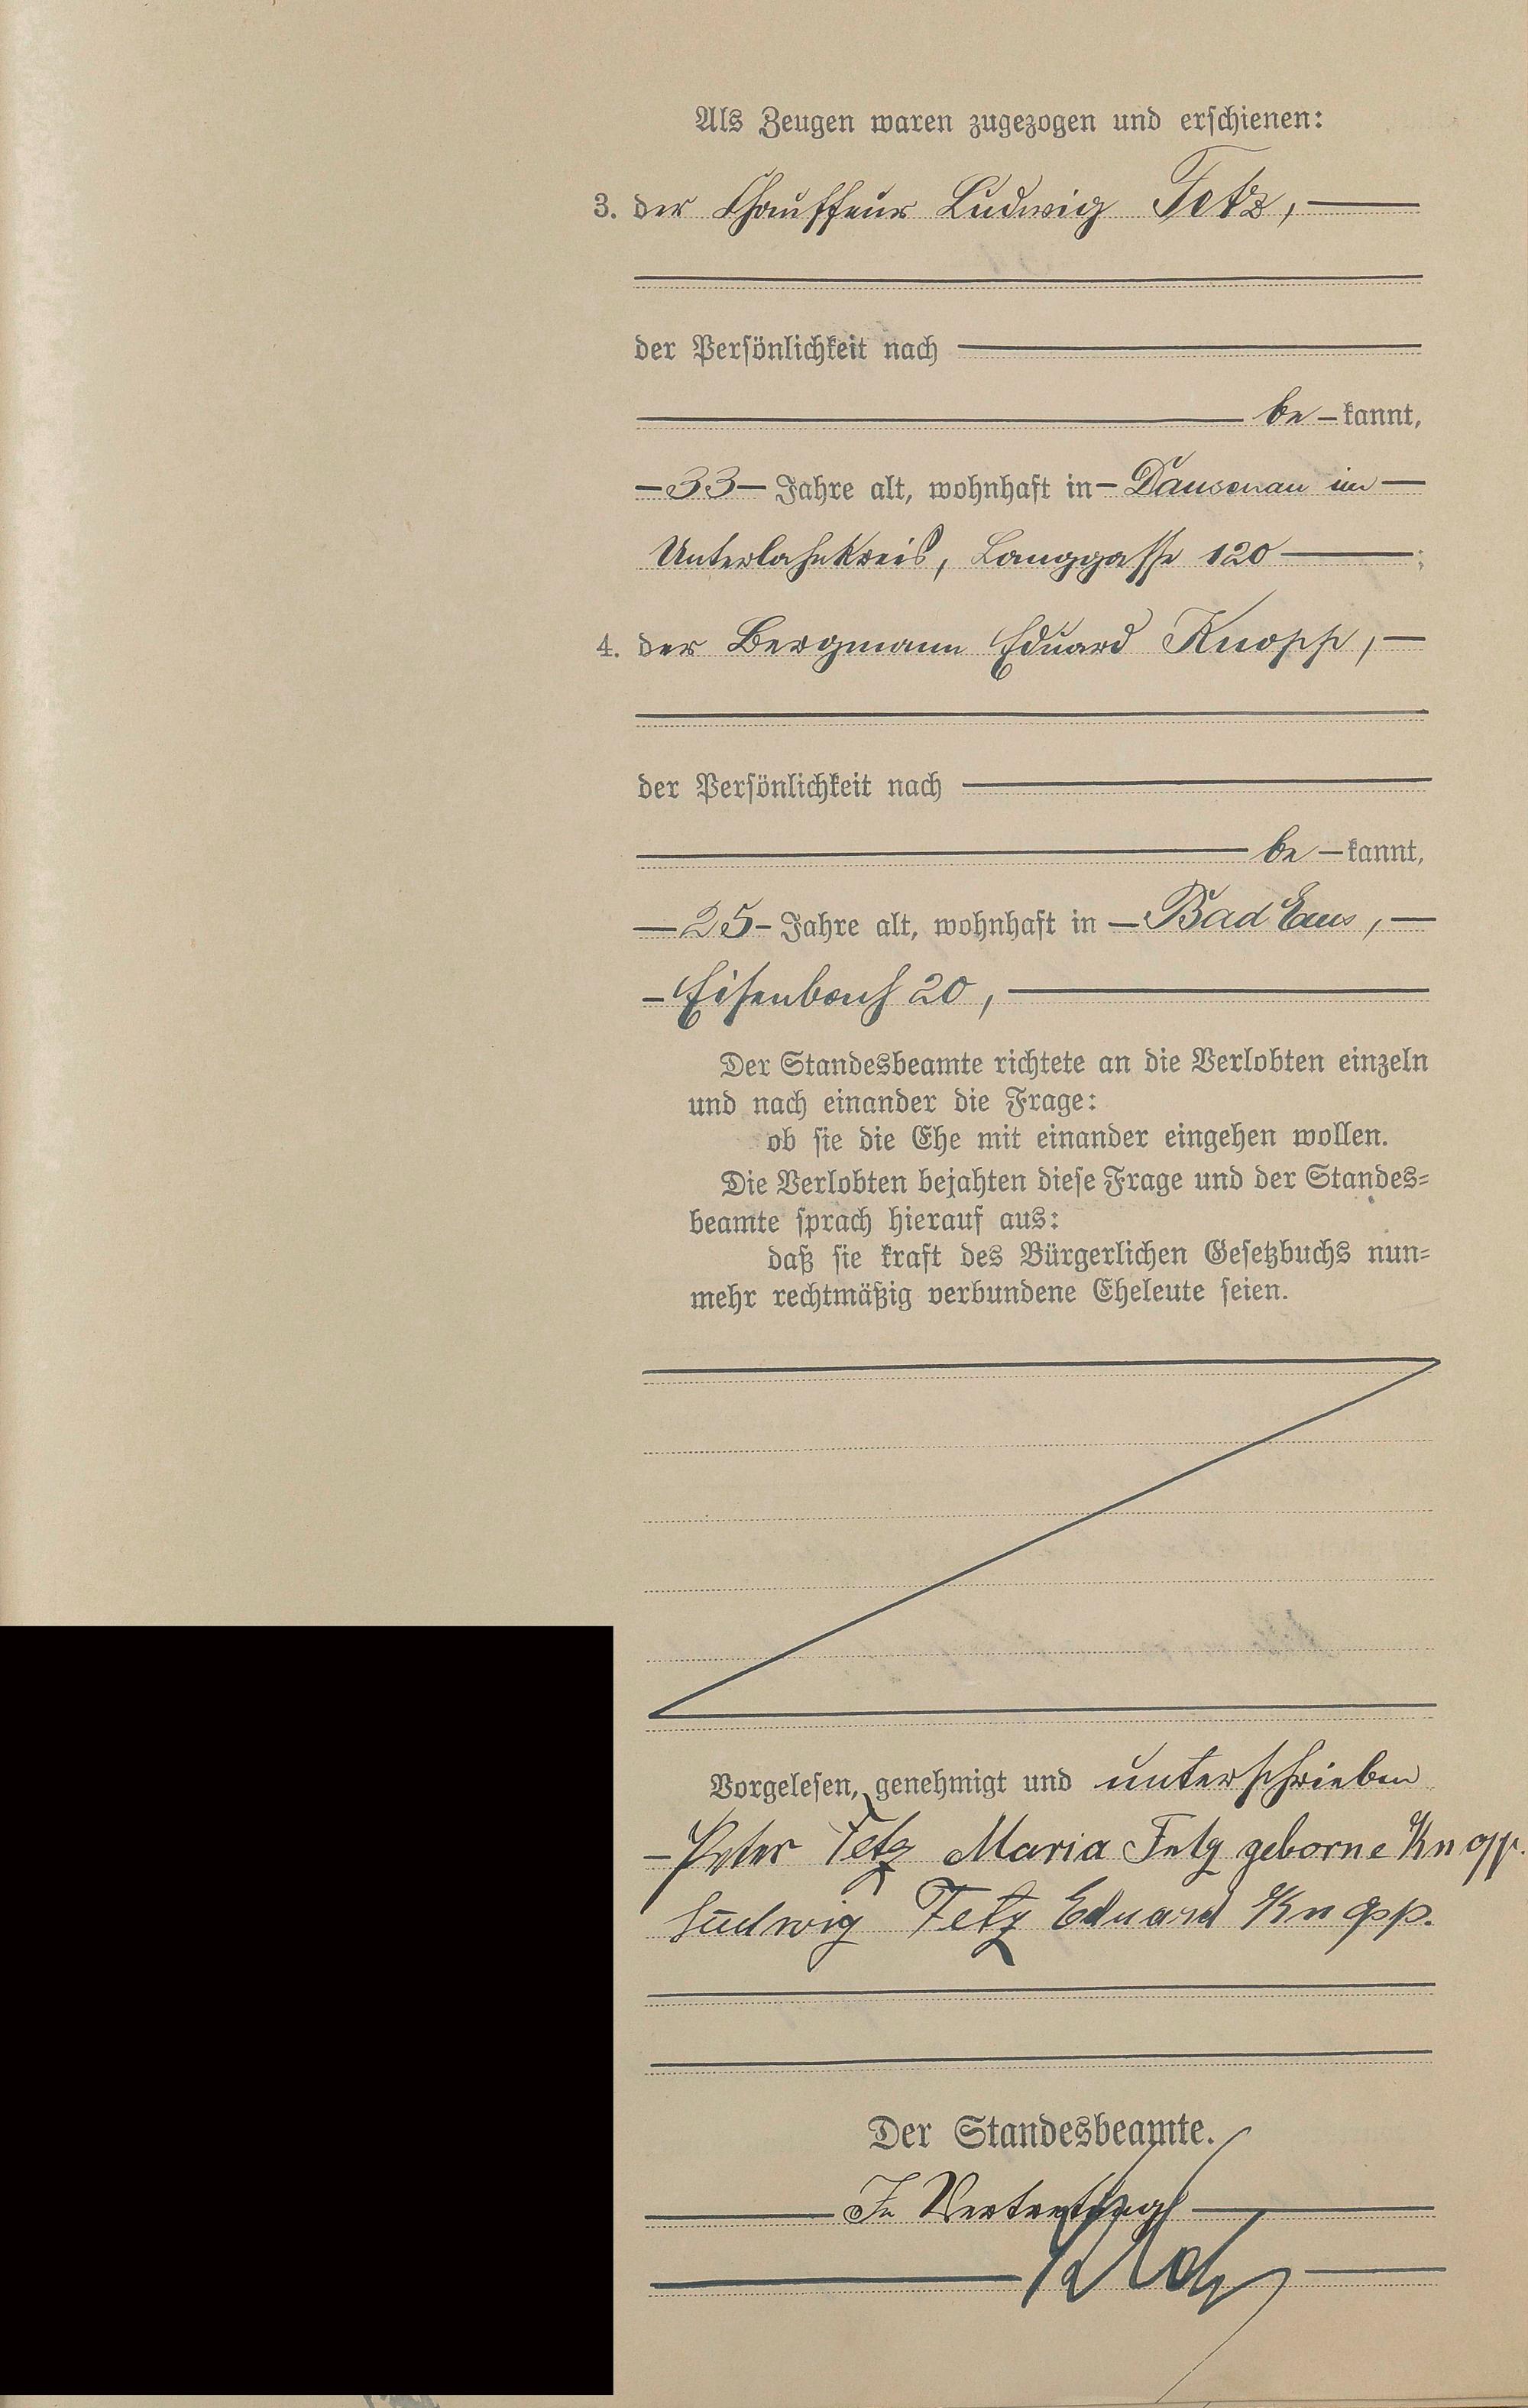 Als Zeugen waren zugezogen und erschienen:
3. der Chauffeur Ludwig Fetz,
der Persönlichkeit nach
be-kannt,
33 Jahre alt, wohnhaft in Dausenau im
Unterlahnkreis, Langgasse 120 ;
4. der Bergmann Eduard Knopp,
der Persönlichkeit nach
be-kannt,
25 Jahre alt, wohnhaft in Bad Ems,
Eisenbach 20,
Der Standesbeamte richtete an die Verlobten einzeln
und nach einander die Frage:
ob sie die Ehe mit einander eingehen wollen.
Die Verlobten bejahten diese Frage und der Standes=
beamte sprach hierauf aus:
daß sie kraft des Bürgerlichen Gesetzbuchs nun=
mehr rechtmäßig verbundene Eheleute seien.
Vorgelesen, genehmigt und unterschrieben
Peter Fetz Maria Fetz geborne Knopp.
Ludwig Fetz Eduard Knopp.
Der Standesbeamte.
In Vertretung